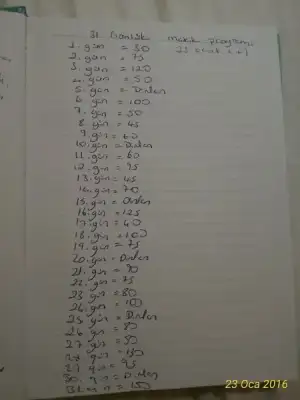 31 Günlük mekik programı
1. gün = 50
2. gün = 75
3. gün = 120
4. gün = 50
5. gün = Dinlen
6. gün = 100
7. gün = 50
8. gün = 45
9. gün = 60
10. gün = Dinlen
11. gün = 60
12. gün = 95
13. gün = 45
14. gün = 70
15. gün = Dinlen
16. gün = 125
17. gün = 40
18. gün = 100
19. gün = 75
20. gün = Dinlen
21. gün = 90
22. gün = 75
23 gün = 80
24. gün = 100
25 gün = Dinlen
26 gün = 80
27 gün = 50
gün = 130
gün = 95
30. gün = Dinlen
31. gün = 150
23 Oca 2016